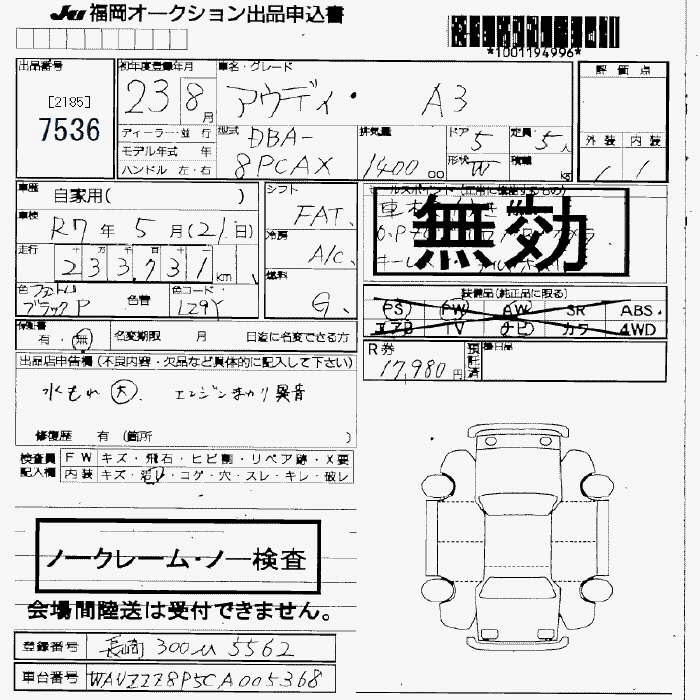 JU 福岡オークション出品申込書
*1001194996*
出品番号
[2185]
7536
初年度登録年月
23 8月
車名・グレード
アウディ・ A3
評価点
外装 内装
1 1
ディーラー・並行
モデル年式 年
ハンドル 左・右
型式
DBA-
8PCAX
排気量
1400 cc
ドア 5
形状 W
定員 5人
積載 kg
車歴
自家用( )
車検
R7年 5月(21日)
シフト
FAT、
冷房
A/C、
燃料
G、
セールスポイント(正常に機能するもの)
無効
走行
233,731 km
色 ファントム
ブラックP
色替
色コード
LZ9Y
装備品(純正品に限る)
PS PW AW SR ABS
エアB TV ナビ カワ 4WD
保証書
有・無
名変期限 月 日迄に名変できる方
R券
17,980円
預託済
後日品
出品店申告欄(不良内容・欠品など具体的に記入して下さい)
水もれ 大. エンジンまわり異音
修復歴 有 (箇所 )
検査員記入欄
FW キズ・飛石・ヒビ割・リペア跡・X要
内装 キズ・汚レ・コゲ・穴・スレ・キレ・破レ
ノークレーム・ノー検査
会場間陸送は受付できません。
登録番号 長崎 300 ム 5562
車台番号 WAUZZZ8P5CA005368